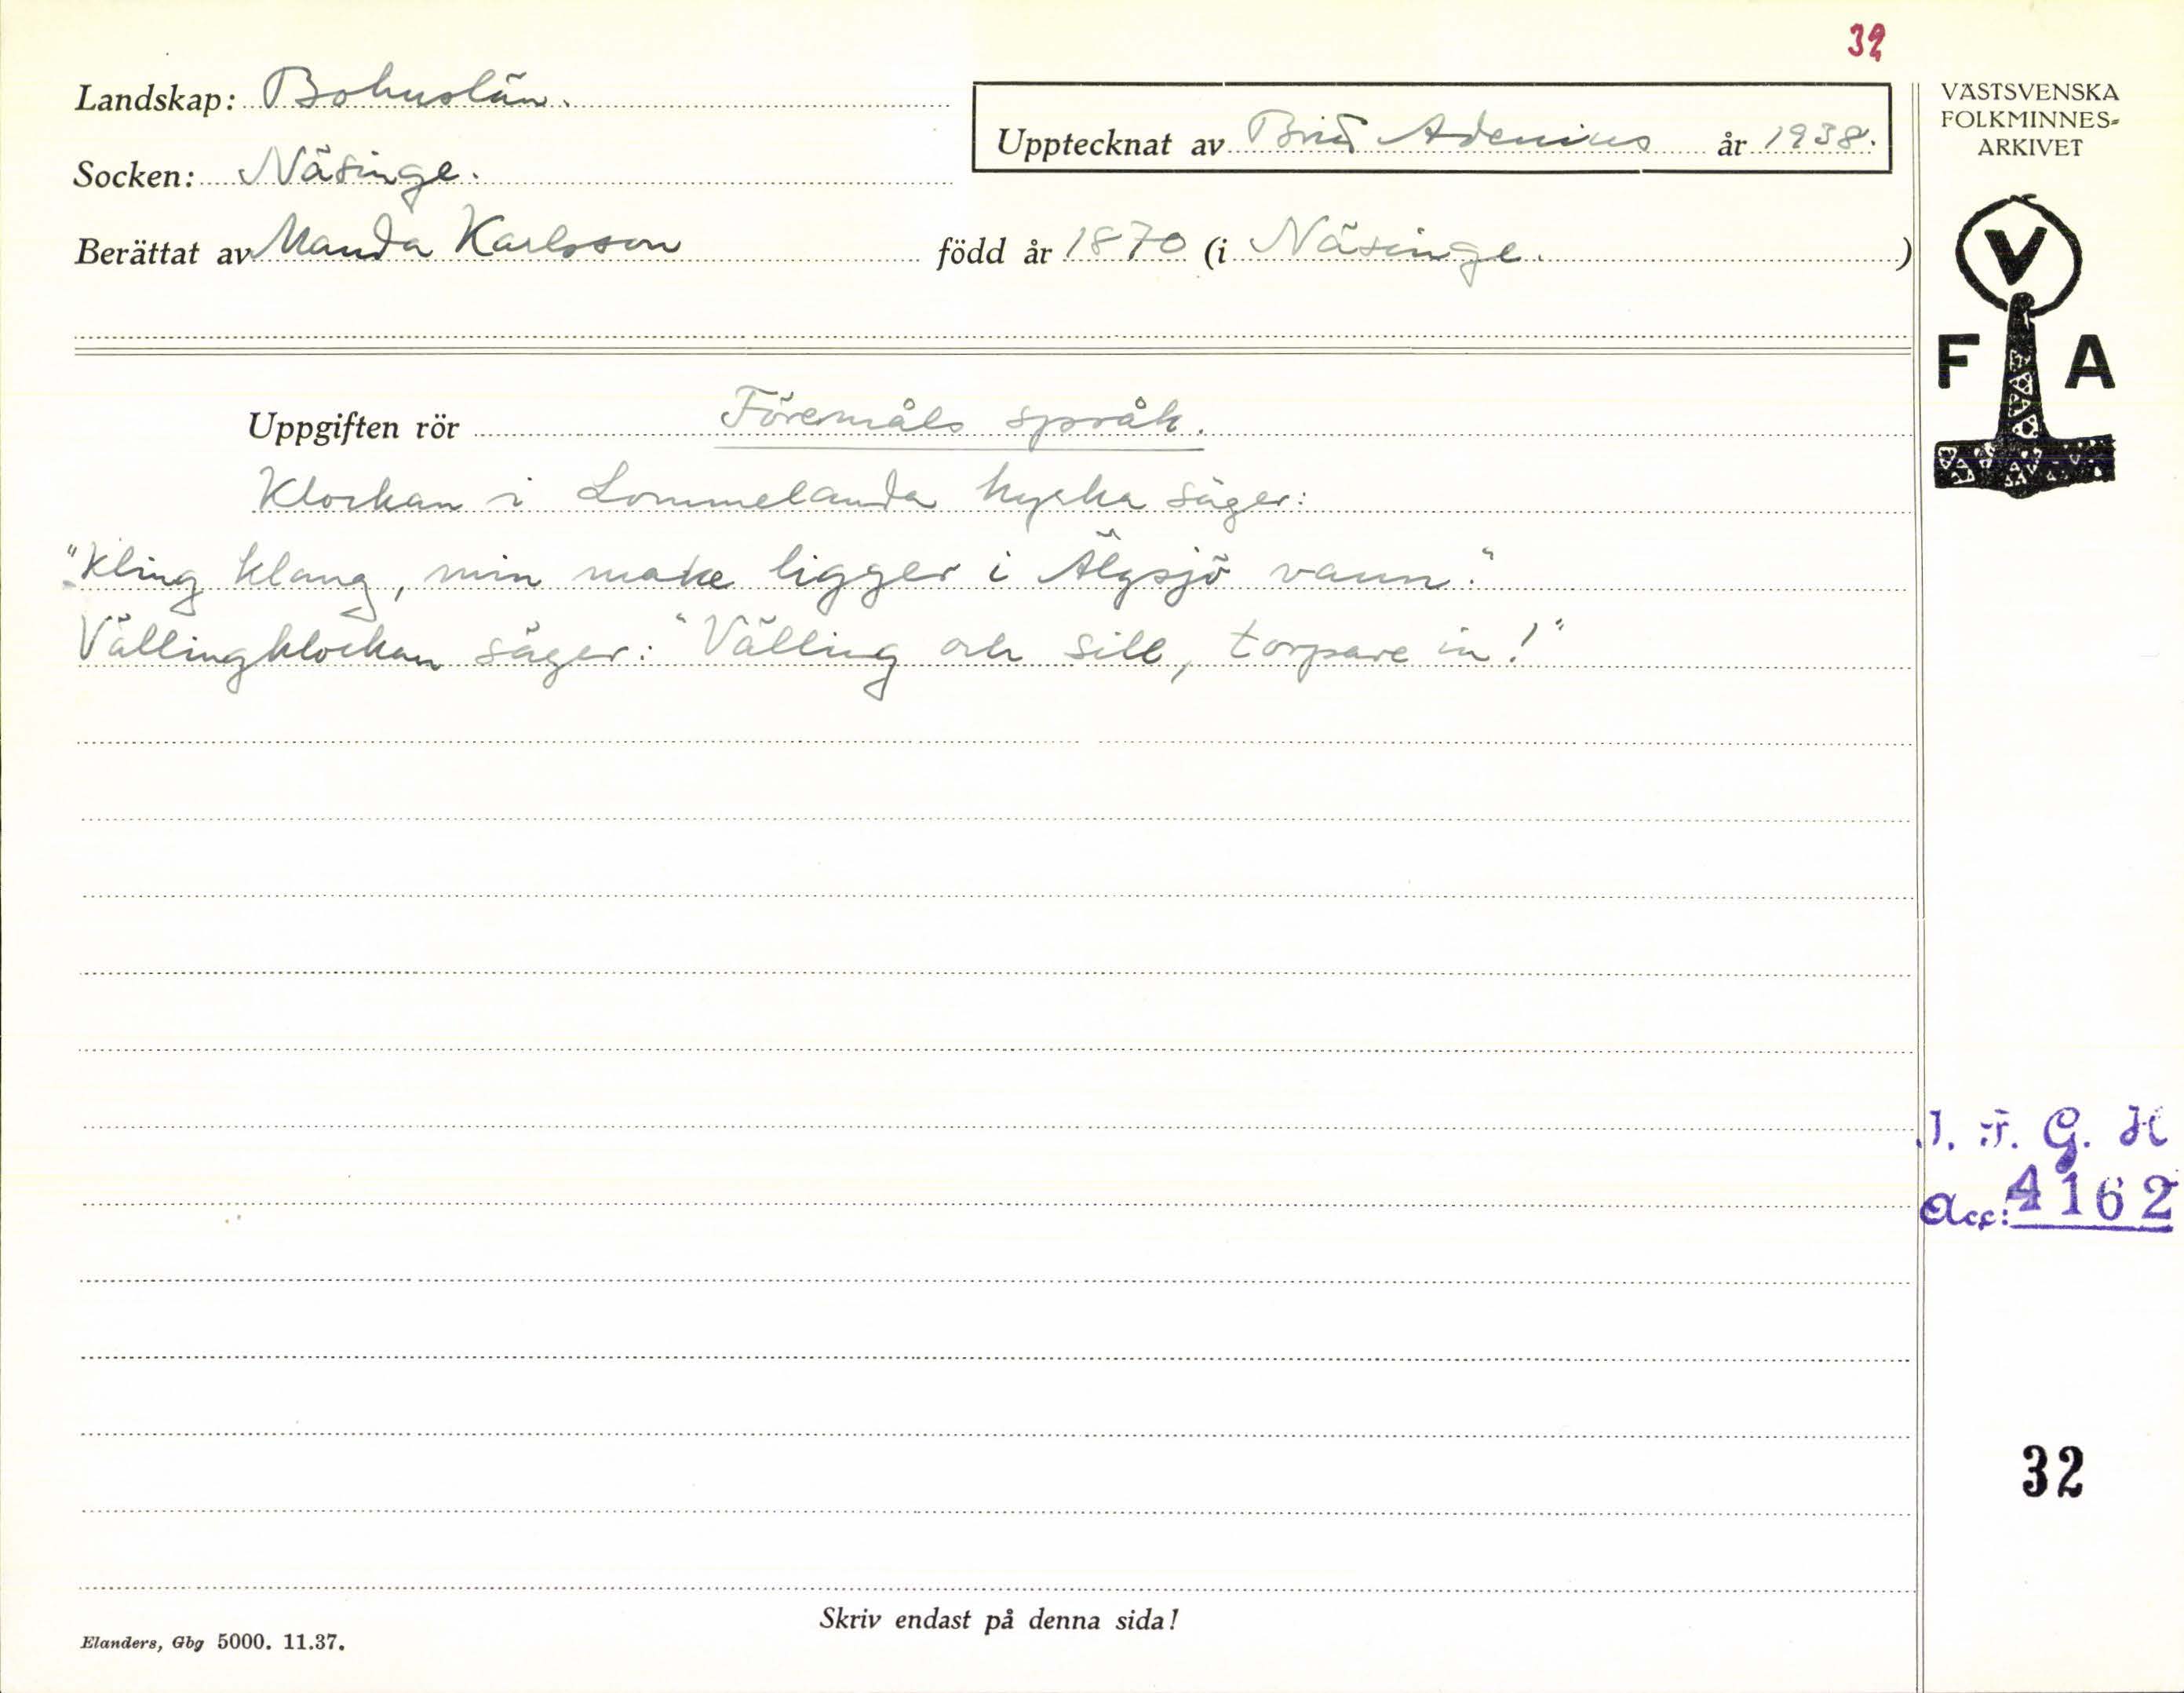 32
Landskap: Bohuslän.
Upptecknat av Brita Adenius år 1938.
Socken: Näsinge.
Berättat av Manda Karlsson född år 1870 (i Näsinge.)
VÄSTSVENSKA
FOLKMINNES-
ARKIVET
V
F A
Uppgiften rör Föremåls språk.
Klockan i Lommelanda kyrka säger:
"Kling klang, min make ligger i Älgsjö vann."
Vällingklockan säger: "Välling och sill, torpare in!"
I. F. G. H
Acc: 4162
32
Skriv endast på denna sida!
Elanders, Gbg 5000. 11.37.